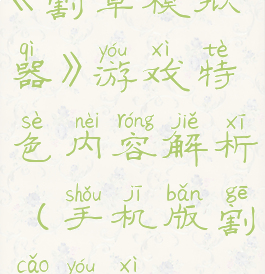 《割草模拟
qì yóu xì tè
器》游戏特
sè nèi róng jiě xī
色内容解析
shǒu jī bǎn gē
（手机版割
cǎo yóu xì